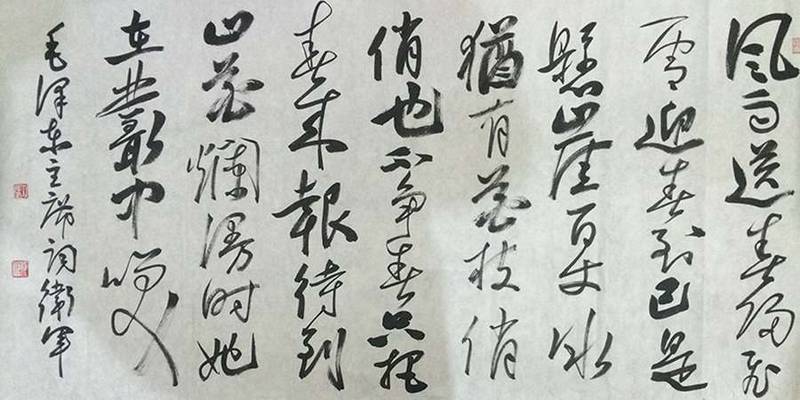 风雨送春归飞
雪迎春到已是
悬崖百丈冰
犹有花枝俏
俏也不争春只把
春来报待到
山花烂漫时她
在丛中笑
毛泽东主席词卫军